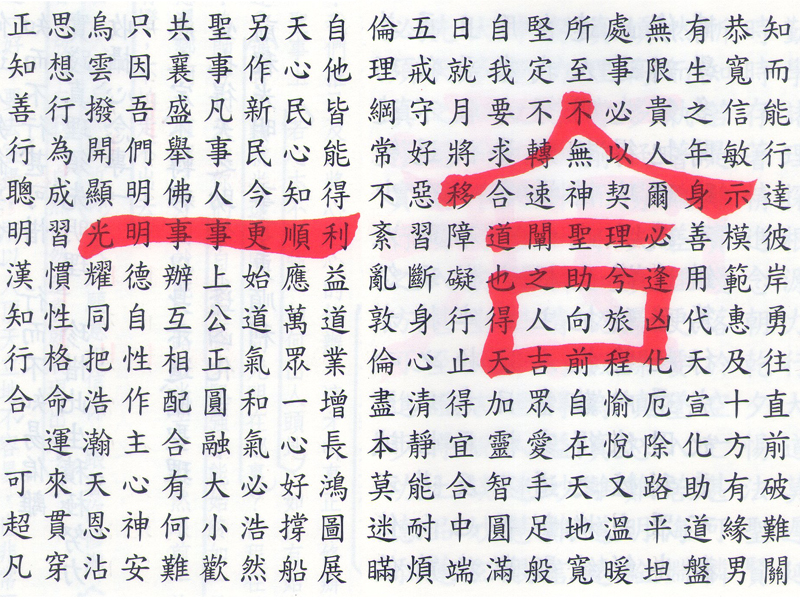 知而能行達彼岸勇往直前破難關
恭寬信敏示模範惠及十方有緣男
有生之年身善用代天宣化助道盤
無限貴人爾必逢凶化厄除路平坦
處事必以契理兮旅程愉悅又溫暖
所至不無神聖助向前自在天地寬
堅定不轉速闡之人吉眾愛手足般
自我要求合道也得天加靈智圓滿
日就月將移障礙行止得宜合中端
五戒守好惡習斷身心清靜能耐煩
倫理綱常不紊亂敦倫盡本莫迷瞞
自他皆能得利益道業增長鴻圖展
天心民心知順應萬眾一心好撐船
另作新民今更始道氣和氣必浩然
聖事凡事人事上公正圓融大小歡
共襄盛舉佛事辦互相配合有何難
只因吾們明明德自性作主心神安
烏雲撥開顯光耀同把浩瀚天恩沾
思想行為成習慣性格命運來貫穿
正知善行聰明漢知行合一可超凡
合一